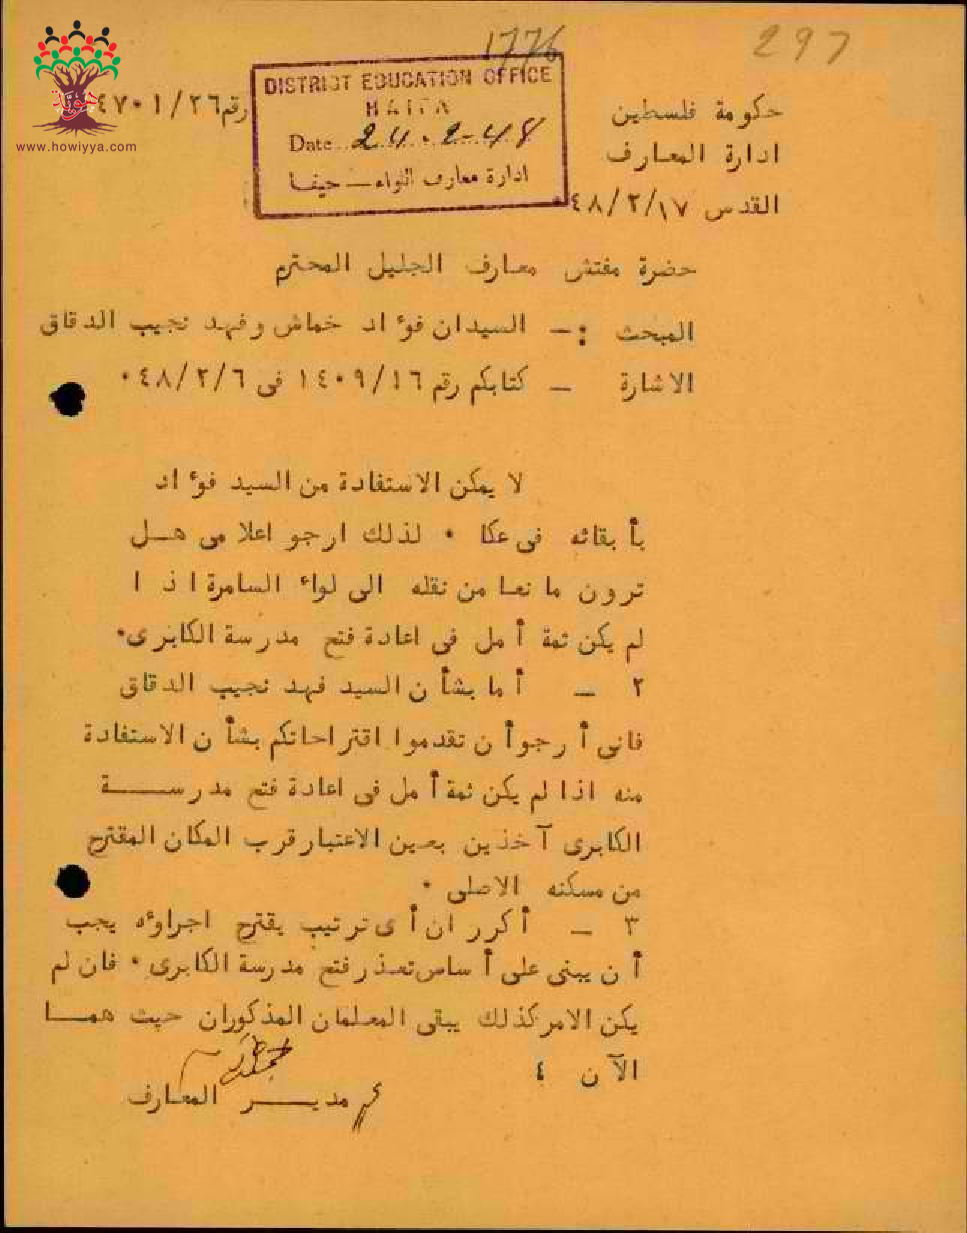 1776
297
DISTRICT EDUCATION OFFICE
HAIFA
Date 24.2-48
ادارة معارف اللواء – حيفا
www.howiyya.com
هوية
حكومة فلسطين
ادارة المعارف
القدس ٤٨/٢/١٧
حضرة مفتش معارف الجليل المحترم
المبحث :– السيدان فؤاد خماش وفهد نجيب الدقاق
الاشارة – كتابكم رقم ١٤٠٩/١٦ فى ٤٨/٢/٦٠
لا يمكن الاستفادة من السيد فؤاد
بأبقائه فى عكا ٠ لذلك ارجو اعلامى هل
ترون مانعا من نقله الى لواء السامرة اذا
لم يكن ثمة أمل فى اعادة فتح مدرسة الكابرى٠
٢ – أما بشأن السيد فهد نجيب الدقاق
فانى أرجوأن تقدموا اقتراحاتكم بشأن الاستفادة
منه اذا لم يكن ثمة أمل فى اعادة فتح مدرسة
الكابرى آخذين بعين الاعتبار قرب المكان المقترح
من مسكنه الاصلى ٠
٣ – أكرر ان أى ترتيب يقترح اجراؤه يجب
أن يبنى على أساس تعذر فتح مدرسة الكابرى ٠ فان لم
يكن الامر كذلك يبقى المعلمان المذكوران حيث هما
الآن ٤
مدير المعارف